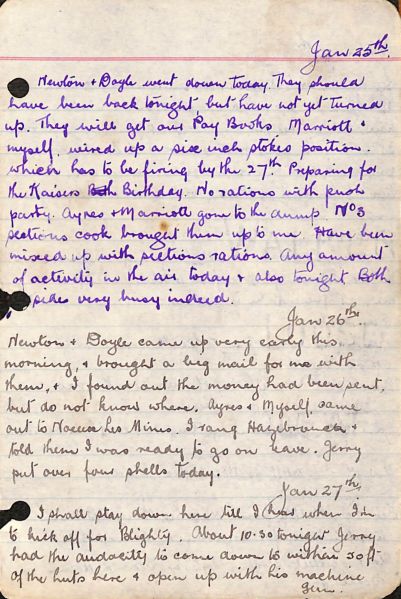 Jan 25th.
Newton & Doyle went down today. They should
have been back tonight but have not yet turned
up. They will get our Pay Books. Marriott &
myself, wired up a six inch stokes position.
which has to be firing by the 27th Preparing for
the Kaisers Birthday. No rations with push
party. Ayres & Marriott gone to the dump. No 3
sections cook brought them up to me. Have been
mixed up with sections rations. Any amount
of activity in the air today & also tonight Both
sides very busy indeed.
Jan 26th.
Newton & Doyle came up very early this
morning, & brought a big mail for me with
them, & I found out the money had been sent,
but do not know where. Ayres & Myself, came
out to Noeux les Mines. I rang Hazebrouck &
told them I was ready to go on leave. Jerry
put over four shells today.
Jan 27th.
I shall stay down here till I hear when I'm
to kick off for Blighty. About 10.30 tonight Jerry
had the audacity to come down to within 50ft
of the huts here & open up with his machine
gun.